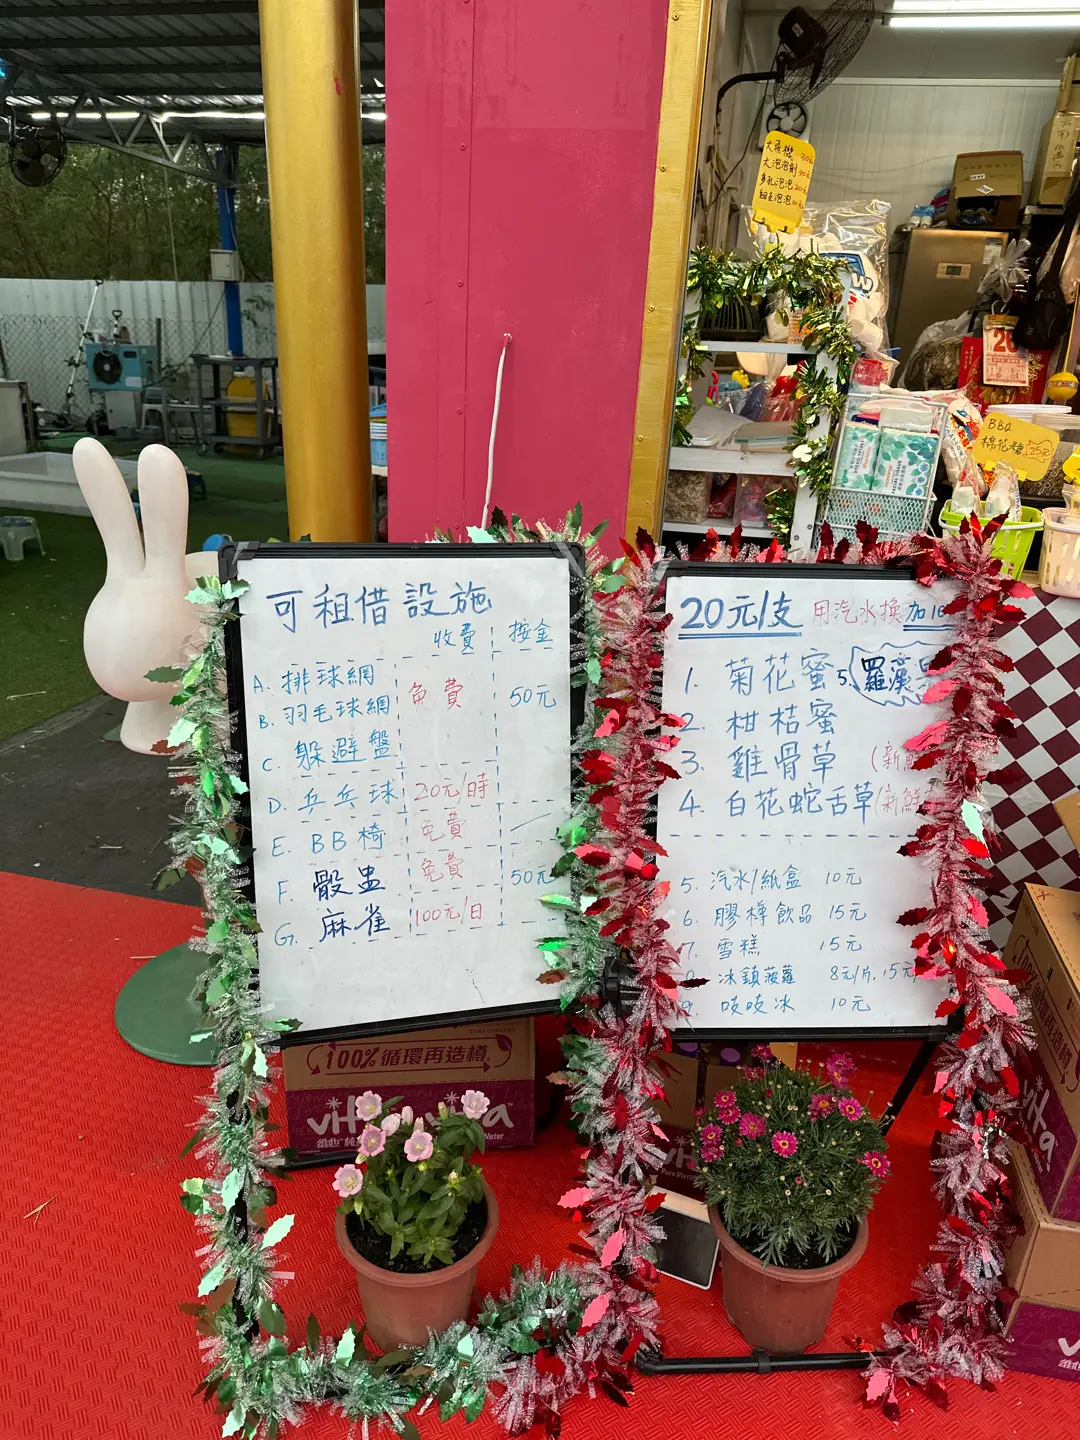 可租借設施
收費 按金
A. 排球網
B. 羽毛球網 免費 50元
C. 躲避盤
D. 乒乓球 20元/時
E. BB椅 免費
F. 骰盅 免費 50元
G. 麻雀 100元/日
20元/支 用汽水換 加10
1. 菊花蜜 5. 羅漢果
2. 柑桔蜜
3. 雞骨草 (新鮮
4. 白花蛇舌草 (新鮮
5. 汽水/紙盒 10元
6. 膠樽飲品 15元
7. 雪糕 15元
8. 冰鎮菠蘿 8元/片, 15元
9. 吱吱冰 10元
大泡泡
多孔泡泡 20元
BBQ
棉花糖 25元
20
100%循環再造樽
vita